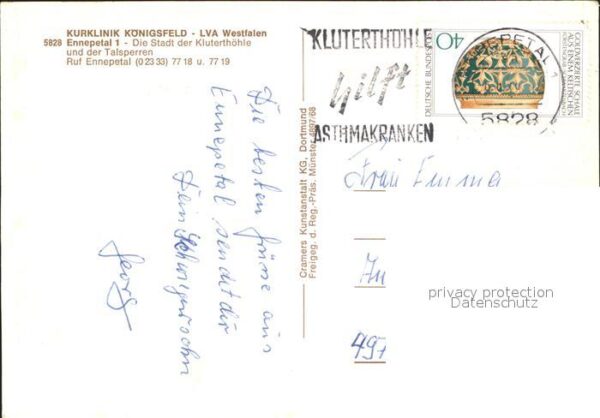 KURKLINIK KÖNIGSFELD - LVA Westfalen
5828 Ennepetal 1 - Die Stadt der Kluterthöhle
und der Talsperren
Ruf Ennepetal (0 23 33) 77 18 u. 77 19
KLUTERTHÖHLE
hilft
ASTHMAKRANKEN
ENNEPETAL 1
5828
DEUTSCHE BUNDESPOST
40
GOLDVERZIERTE SCHALE
AUS EINEM KELTISCHEN
Cramers Kunstanstalt KG, Dortmund
Freigeg. d. Reg.-Präs. Münster 4697/68
Die besten Grüße aus
Ennepetal sendet dir
Dein Schwiegersohn
Georg
Frau Emma
privacy protection
Datenschutz